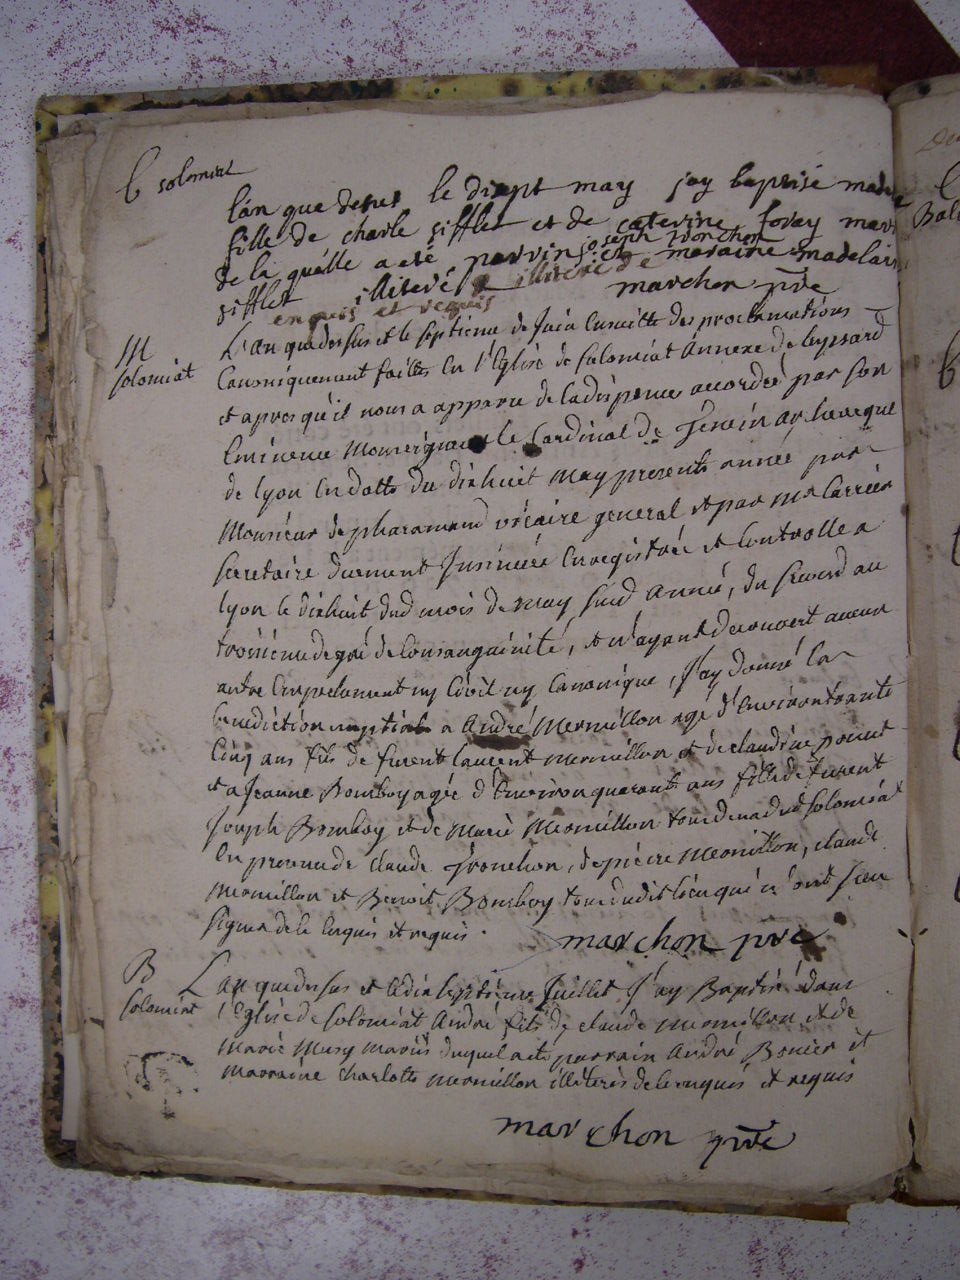 b solomiat
lan que desus le disept may jay baptisé made
fille de charle sifflet et de caterine foray mari
de la quélle a eté parrin joseph tronchon et maraine madelaine
sifflet illiteré illiteré de
enquis et requis marchon ptre
M
solomiat
L'an que dessus et le septieme de Juin ensuitte des proclamations
Canoniquement faittes en l'Eglise de solomiat annexe de leyssard
et apres qu'il nous a apparu de la dispence accordée par son
Eminence Monseigneur le Cardinal de Tencin archeveque
de lyon en datte du dixhuit may presente année par
Monsieur de pharamond vicaire general et par Mr Carrier
secretaire duement Insinuée enregistrée et controlle a
lyon le dixhuit dud mois de may susd année, du second au
troisieme degré de Consanguinité, et n'ayant decouvert aucun
autre empechement ny Civil ny Canonique, J'ay donné la
benediction nuptiale a André Mermillon agé d'environ trante
Cinq ans fils de furent laurent mermillon et de claudine poncet
et a Jeanne Bomboy agée d'Environ quarante ans fille de furent
Joseph Bomboy et de Marie Mermillon tous deux dud solomiat
En presence de claude tronchon, de pierre Mermillon, claude
Mermillon et Benoit Bomboy tous dudit lieu qui n'ont sceu
signer de ce enquis et requis. marchon ptre
B
solomiat
L'an que dessus et le dix septieme Juillet J'ay Baptisé dans
l'Eglise de solomiat André fils de claude mermillon et de
Marie Musy mariés duquel a eté parrain André Bonier et
marraine charlotte mermillon illiterés de ce enquis et requis
marchon ptre